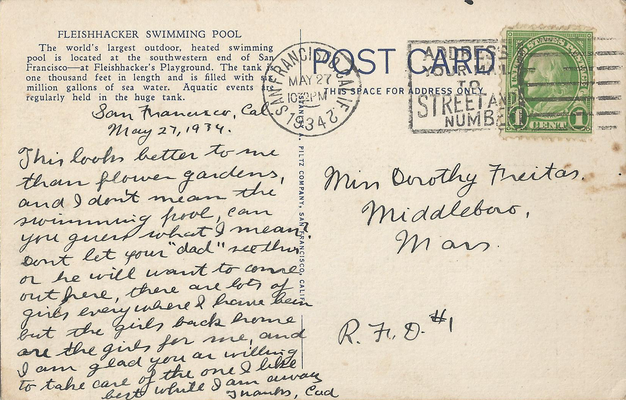 FLEISHHACKER SWIMMING POOL
The world's largest outdoor, heated swimming
pool is located at the southwestern end of San
Francisco—at Fleishhacker's Playground. The tank is
one thousand feet in length and is filled with six
million gallons of sea water. Aquatic events are
regularly held in the huge tank.
San Francisco, Cal.
May 27, 1934.
This looks better to me
than flower gardens,
and I don't mean the
swimming pool, can
you guess what I mean?
Don't let your "dad" see this
or he will want to come
out here, there are lots of
girls everywhere I have been
but the girls back home
are the girls for me, and
I am glad you are willing
to take care of the one I like
best while I am away
Thanks,
PILTZ COMPANY, SAN FRANCISCO, CALIF.
POST CARD
THIS SPACE FOR ADDRESS ONLY
SAN FRANCISCO, CALIF
MAY 27
PM
1934
ADDRESS
YOUR
TO
STREET AND
NUMBER
UNITED STATES POSTAGE
1 CENT 1
Miss Dorothy Freitas.
Middleboro,
Mass.
R. F. D. #1